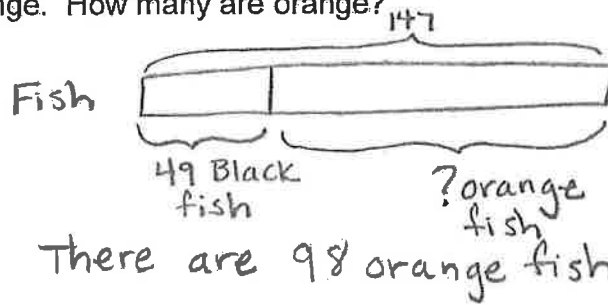 How many are orange?
147
Fish
49 Black
fish
? orange
fish
There are 98 orange fish